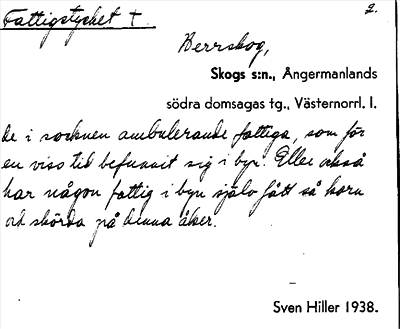 Fattigstycket †.
2.
Berrskog,
Skogs s:n., Ångermanlands
södra domsagas tg., Västernorrl. l.
de i socknen ambulerande fattiga, som för
en viss tid befunnit sig i byn. Eller också
har någon fattig i byn själv fått så korn
och skörda på denna åker.
Sven Hiller 1938.